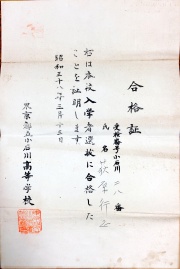 合格証
受検番号小石川 二八 番
氏名 萩原行正
右は本校入学者選抜に合格した
ことを証明します
昭和三十八年三月十三日
東京都立小石川高等学校